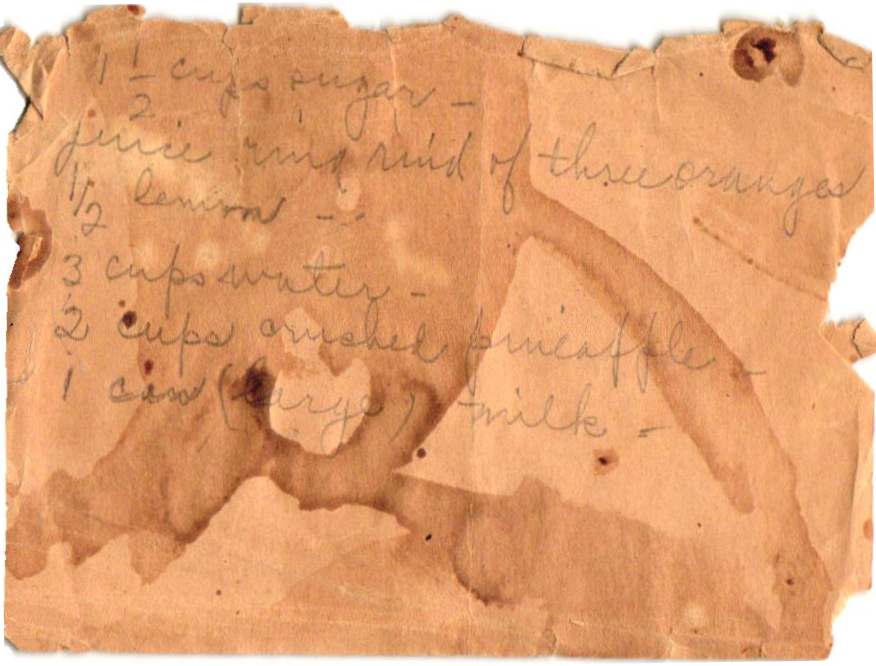 1 1/2 cups sugar -
juice and rind of three oranges
1/2 lemon - -
3 cups water -
2 cups crushed pineapple -
1 can (large) milk -